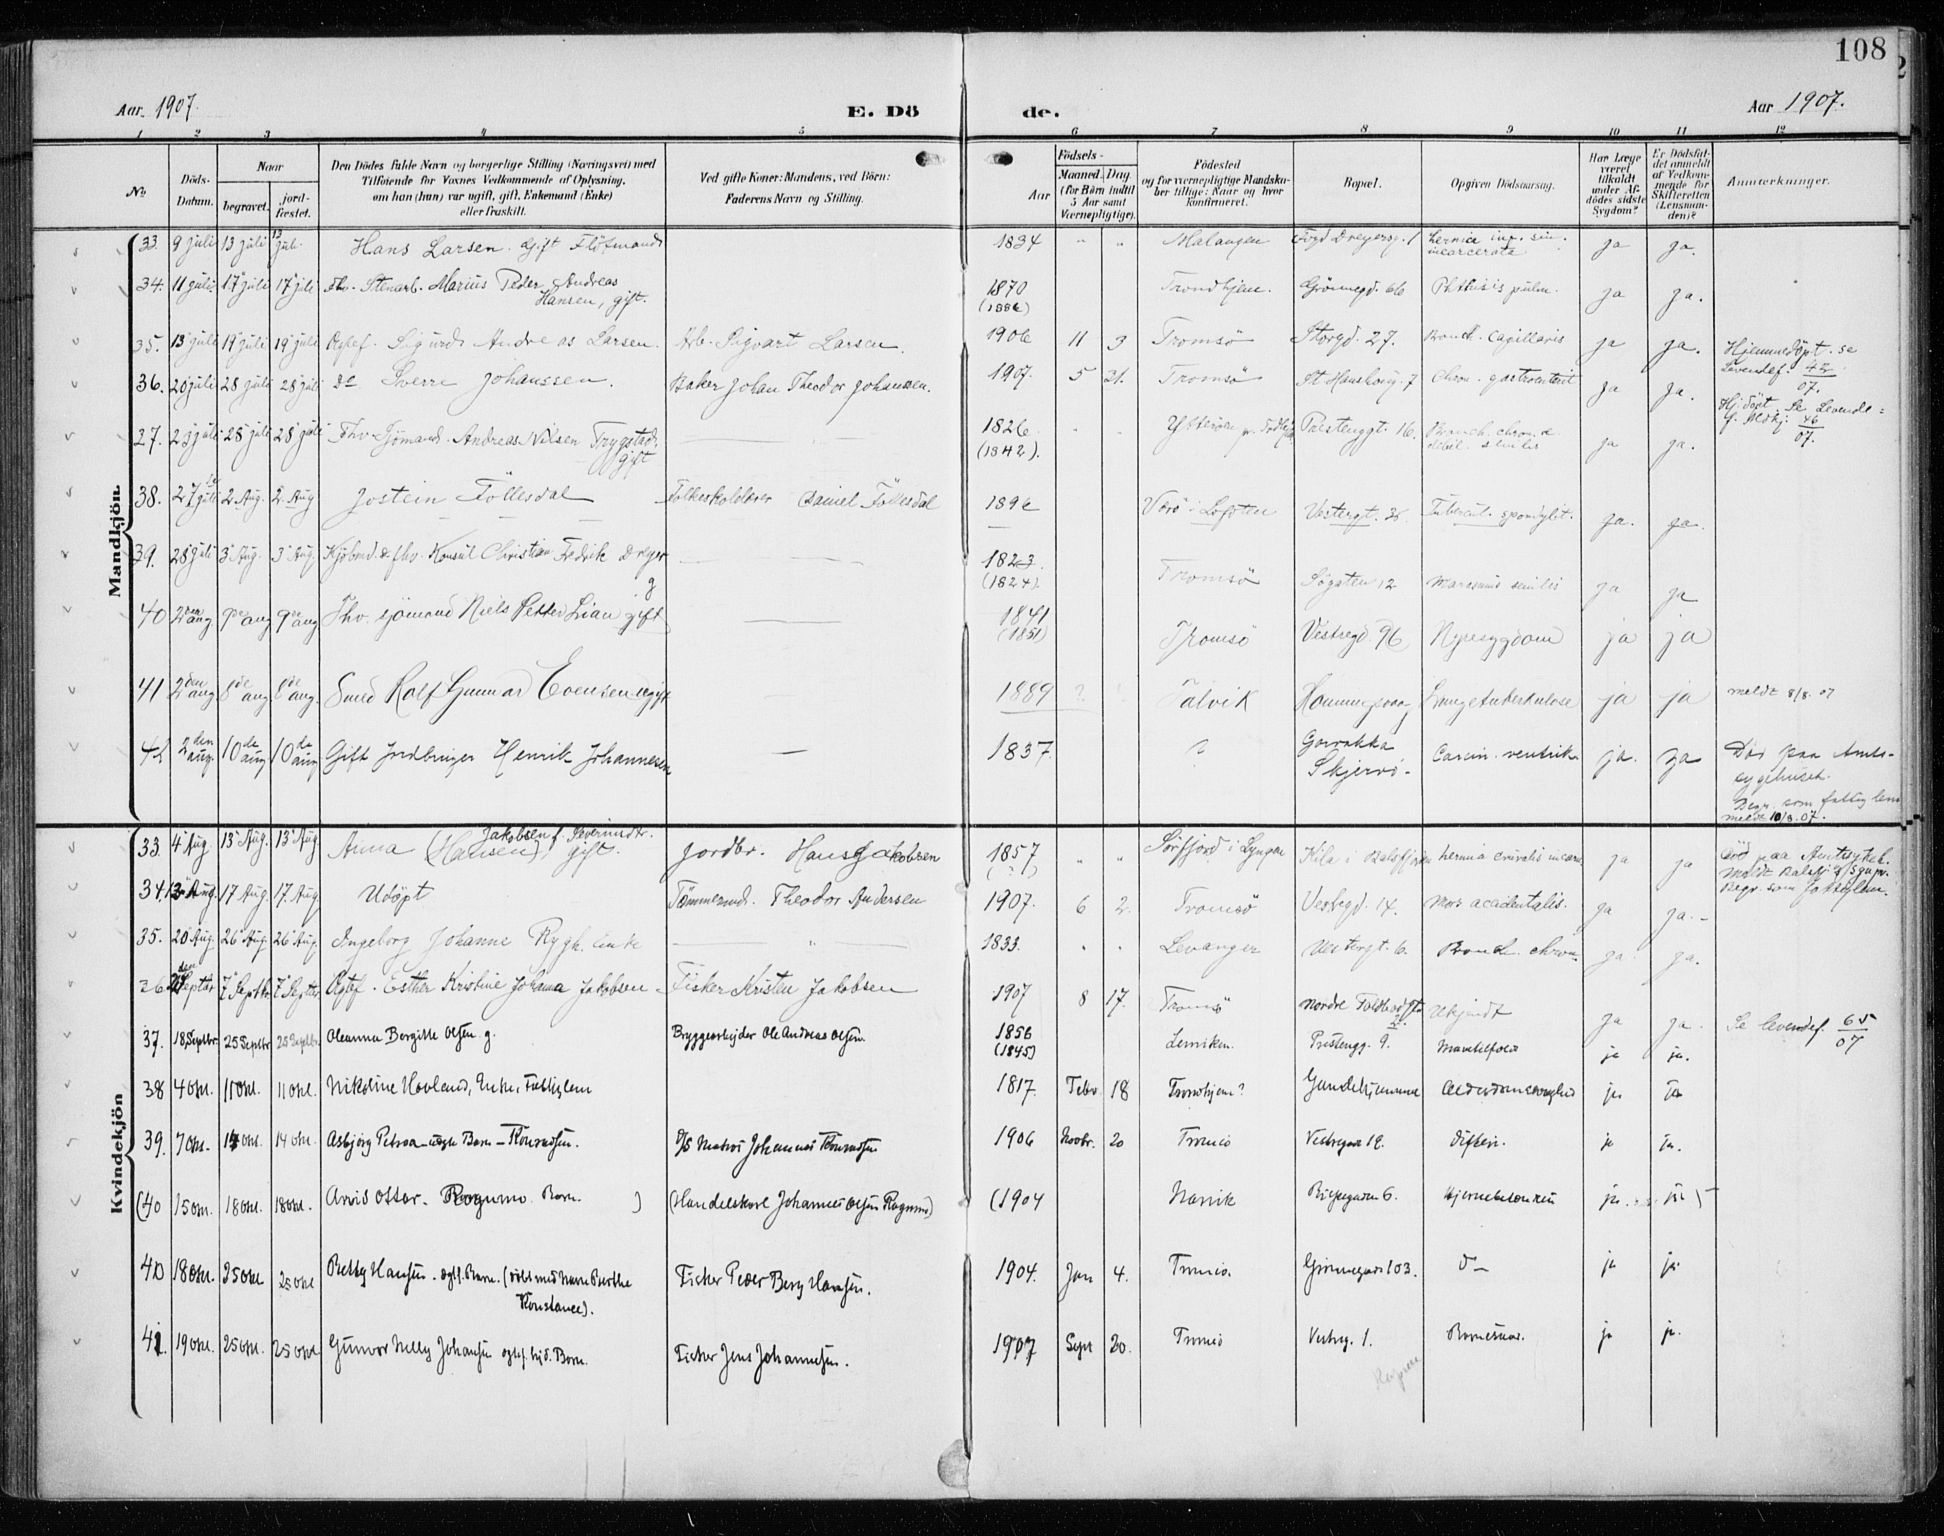 108
Aar 1907. E. Dö de. Aar 1907.
1 2 3 4 5 6 7 8 9 10 11 12
No
Döds-Datum.
Naar
begravet.
jordfæstet.
Den Dödes fulde Navn og borgerlige Stilling (Næringsvei) med
Tilföiende for Voxnes Vedkommende af Oplysning,
om han (hun) var ugift, gift, Enkemand (Enke)
eller fraskilt.
Ved gifte Koner: Mandens, ved Börn:
Faderens Navn og Stilling.
Födsels-
Aar
Maaned. Dag.
(for Börn indtil
5 Aar samt
Værnepligtige).
Födested
og for værnepligtige Mandska-
ber tillige: Naar og hvor
konfirmeret.
Bopæl.
Opgiven Dödsaarsag.
Har Læge
været
tilkaldt
under Af-
dödes sidste
Sygdom?
Er Dödsfal-
det anmeldt
af Vedkom-
mende for
Skifteretten
(Lensman-
den)?
Anmærkninger.
Mandkjön.
33. 9 juli 13 juli 13 jul. Hans Larsen. Gift 1834 " " Malangen hernia ing. sin. incarcerata ja ja.
34. 11 juli 17 juli 17 juli Fhv. Stenarb. Marius Peder Andreas Hansen, gift. 1870 (1886) Trondhjem. Grönnegd. 66 Phthisis pulm. ja ja.
35. 13 juli 19 juli 19 juli Ægtef. Sigurd Andreas Larsen. Arb. Sigvart Larsen. 1906 11 3 Tromsö Storgd. 27. Bronch. Capillaris ja ja.
36. 20 juli 28 juli 28 juli Do Sverre Johanssen. Baker Johan Theodor Johanssen. 1907. 5 31. Tromsö St Hanshaug. 7 Chron. gastroenterit ja ja. Hjemmedöpt. se Levendef. 42/07.
37. 23 juli 28 juli 28 juli Fhv Sjömand. Andreas Nilsen Trygstad. gift 1826. (1842). " " Ytteröen Prestenggt. 16. Bronch. chron. & debil. senilis ja ja. Hj.döpt. Se Levende- 46/07.
38. 27 juli 2. Aug. 2. Aug Jostein Föllesdal Folkeskolelærer Daniel Föllesdal 1896 Værö i Lofoten Vestergt. 38. Tubercul. spondylit. ja. ja.
39. 28 juli 3 Aug. 3 Aug. Kjöbmd. & fhv. Konsul Christian Fredrik Dreyer g 1823. (1824). Tromsö Sögaten 12 Marasmus senilis ja ja
40 2den aug. 9de aug 9de aug Fhv. sjömand Niels Petter Lian gift 1841 (1851) Tromsö Vestregd. 96 Nyresygdom ja ja
41 2den aug 8de aug 8de aug. Smed Rolf Gunnar Evensen ugift 1889 ? Talvik Honningsvaag Lungetuberkulose ja ja meldt 8/8. 07
42 2den aug. 10de aug 10de aug Gift Jordbruger Henrik Johannesen 1837 ? Skjervö. Carcin. ventrik. ja. ja Död paa Amts-sygehuset. Begr. som fattiglem meldt 10/8. 07.
Kvindekjön
33. 4 Aug. 13 Aug 13 Aug Anna (Hansen) Jakobsen f. Severinsdtr. gift. Jordbr. Hans Jakobsen 1857 " " Sörfjord i Lyngen i Balsfjorden hernia cruralis incarc. ja ja Död paa Amtssykeh. Begr. som fattiglem.
34. 13 Aug. 17 Aug 17. Aug Udöpt Tömmermd. Theodor Andersen 1907. 6 2. Tromsö Vestregd. 14. Mors accidentalis. ja ja.
35. 20 Aug. 26 Aug. 26 Aug. Ingeborg Johanne Rygh. Enke " 1833. " " Levanger Vestregt. 6. Bronch. chron. ja ja.
36 Septbr 7 Septbr 7 Septbr. Ægtef. Esther Kristine Johanna Jakobsen Fisker Kristen Jakobsen 1907 8 17. Tromsö Nordre Ukjendt ja ja. Se levendef. 65/07
37. 18 Septbr. 25 Septbr. 25 Septbr. Oleanna Bergitte Olsen g. Bryggearbejder Ole Andreas Olsen. 1856 (1845) Lenviken. Prestengg. 9. ja ja.
38 4 Okt. 11 Okt. 11 Okt. Nikoline Hovland, Enke, Fattiglem 1817. Febr 18 Trondhjem? Gamlehjemmet Alderdomssvaghed ja ja
39. 7 Okt. 14 Okt. 14 Okt. Asbjörg Petrea ægte Barn Konradsen. D/S Matros Johannes Konradsen 1906 Novbr. 20 Tromsö Difteri. ja ja.
(40 15 Okt. 18 Okt. 18 Okt. Arvid Ottar Rognmo. Barn. ) (Handelskarl Johannes Olsen Rognmo) (1904 Narvik 6. Hjernebetændelse ja. ja )
40 18 Okt. 25 Okt 25 Okt Betty Hansen. Ægtf. Barn. (döbt med Navn Berthe Konstance). Fisker Peder Berg Hansen. 1904. Jan 4. Tromsö. Grönnegaden 103. d- ja ja
41. 19 Okt. 25 Okt. 25 Okt Gunvor Nelly Johansen ægtef. hjd. Barn. Fisker Jens Johannesen. 1907 Sept 20. Tromsö Vestreg. 1. ja ja.